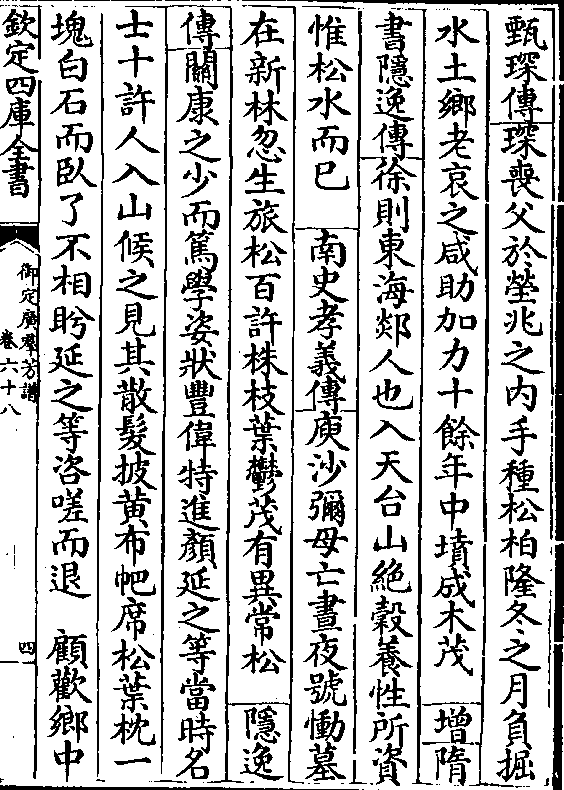 甄琛傳琛喪父於塋兆之内手種松柏隆冬之月負掘
水土鄉老哀之咸助加力十餘年中墳成木茂　增隋
書隱逸傳徐則東海郯人也入天台山絶穀養性所資
惟松水而已　南史孝義傳庾沙彌母亡晝夜號慟墓
在新林忽生旅松百許株枝葉鬱茂有異常松　隱逸
傳關康之少而篤學姿狀豐偉特進顏延之等當時名
士十許人入山候之見其散髮披黄布帊席松葉枕一
塊白石而臥了不相眄延之等咨嗟而退　顧歡鄉中
欽定四庫全書
御定廣羣芳譜
卷六十八
四